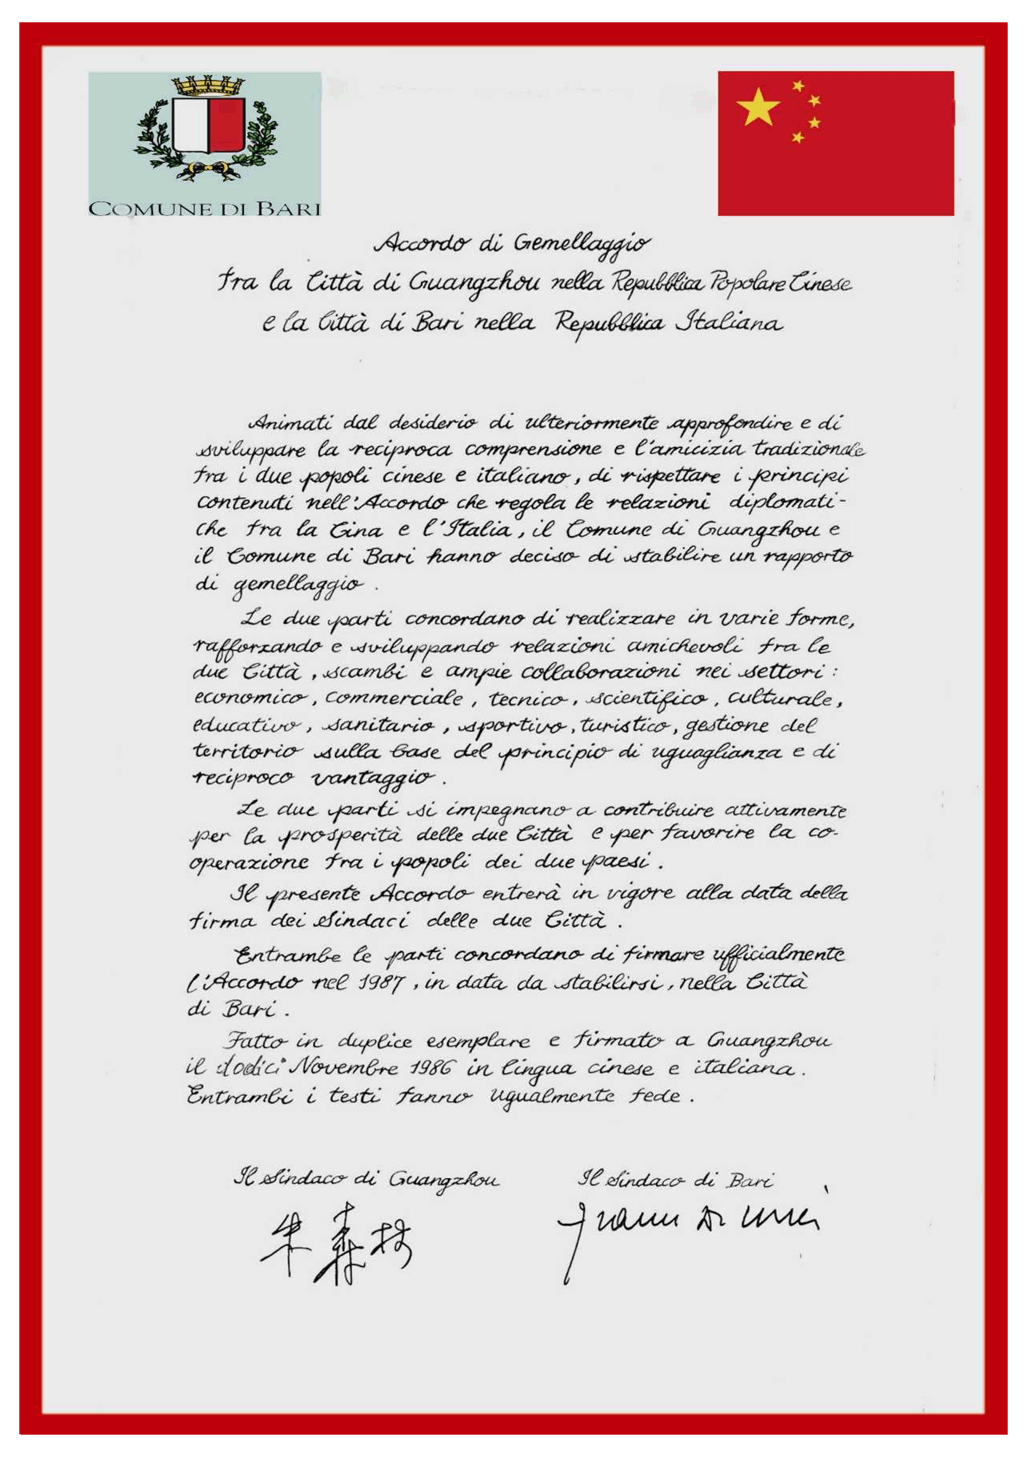 COMUNE DI BARI
Accordo di Gemellaggio
fra la Città di Guangzhou nella Repubblica Popolare Cinese
e la Città di Bari nella Repubblica Italiana
Animati dal desiderio di ulteriormente approfondire e di
sviluppare la reciproca comprensione e l'amicizia tradizionale
fra i due popoli cinese e italiano, di rispettare i principi
contenuti nell'Accordo che regola le relazioni diplomati-
che fra la Cina e l'Italia, il Comune di Guangzhou e
il Comune di Bari hanno deciso di stabilire un rapporto
di gemellaggio.
Le due parti concordano di realizzare in varie forme,
rafforzando e sviluppando relazioni amichevoli fra le
due Città, scambi e ampie collaborazioni nei settori:
economico, commerciale, tecnico, scientifico, culturale,
educativo, sanitario, sportivo, turistico, gestione del
territorio sulla base del principio di uguaglianza e di
reciproco vantaggio.
Le due parti si impegnano a contribuire attivamente
per la prosperità delle due Città e per favorire la co-
operazione fra i popoli dei due paesi.
Il presente Accordo entrerà in vigore alla data della
firma dei Sindaci delle due Città.
Entrambe le parti concordano di firmare ufficialmente
l'Accordo nel 1987, in data da stabilirsi, nella Città
di Bari.
Fatto in duplice esemplare e firmato a Guangzhou
il dodici Novembre 1986 in lingua cinese e italiana.
Entrambi i testi fanno ugualmente fede.
Il Sindaco di Guangzhou Il Sindaco di Bari
朱森林